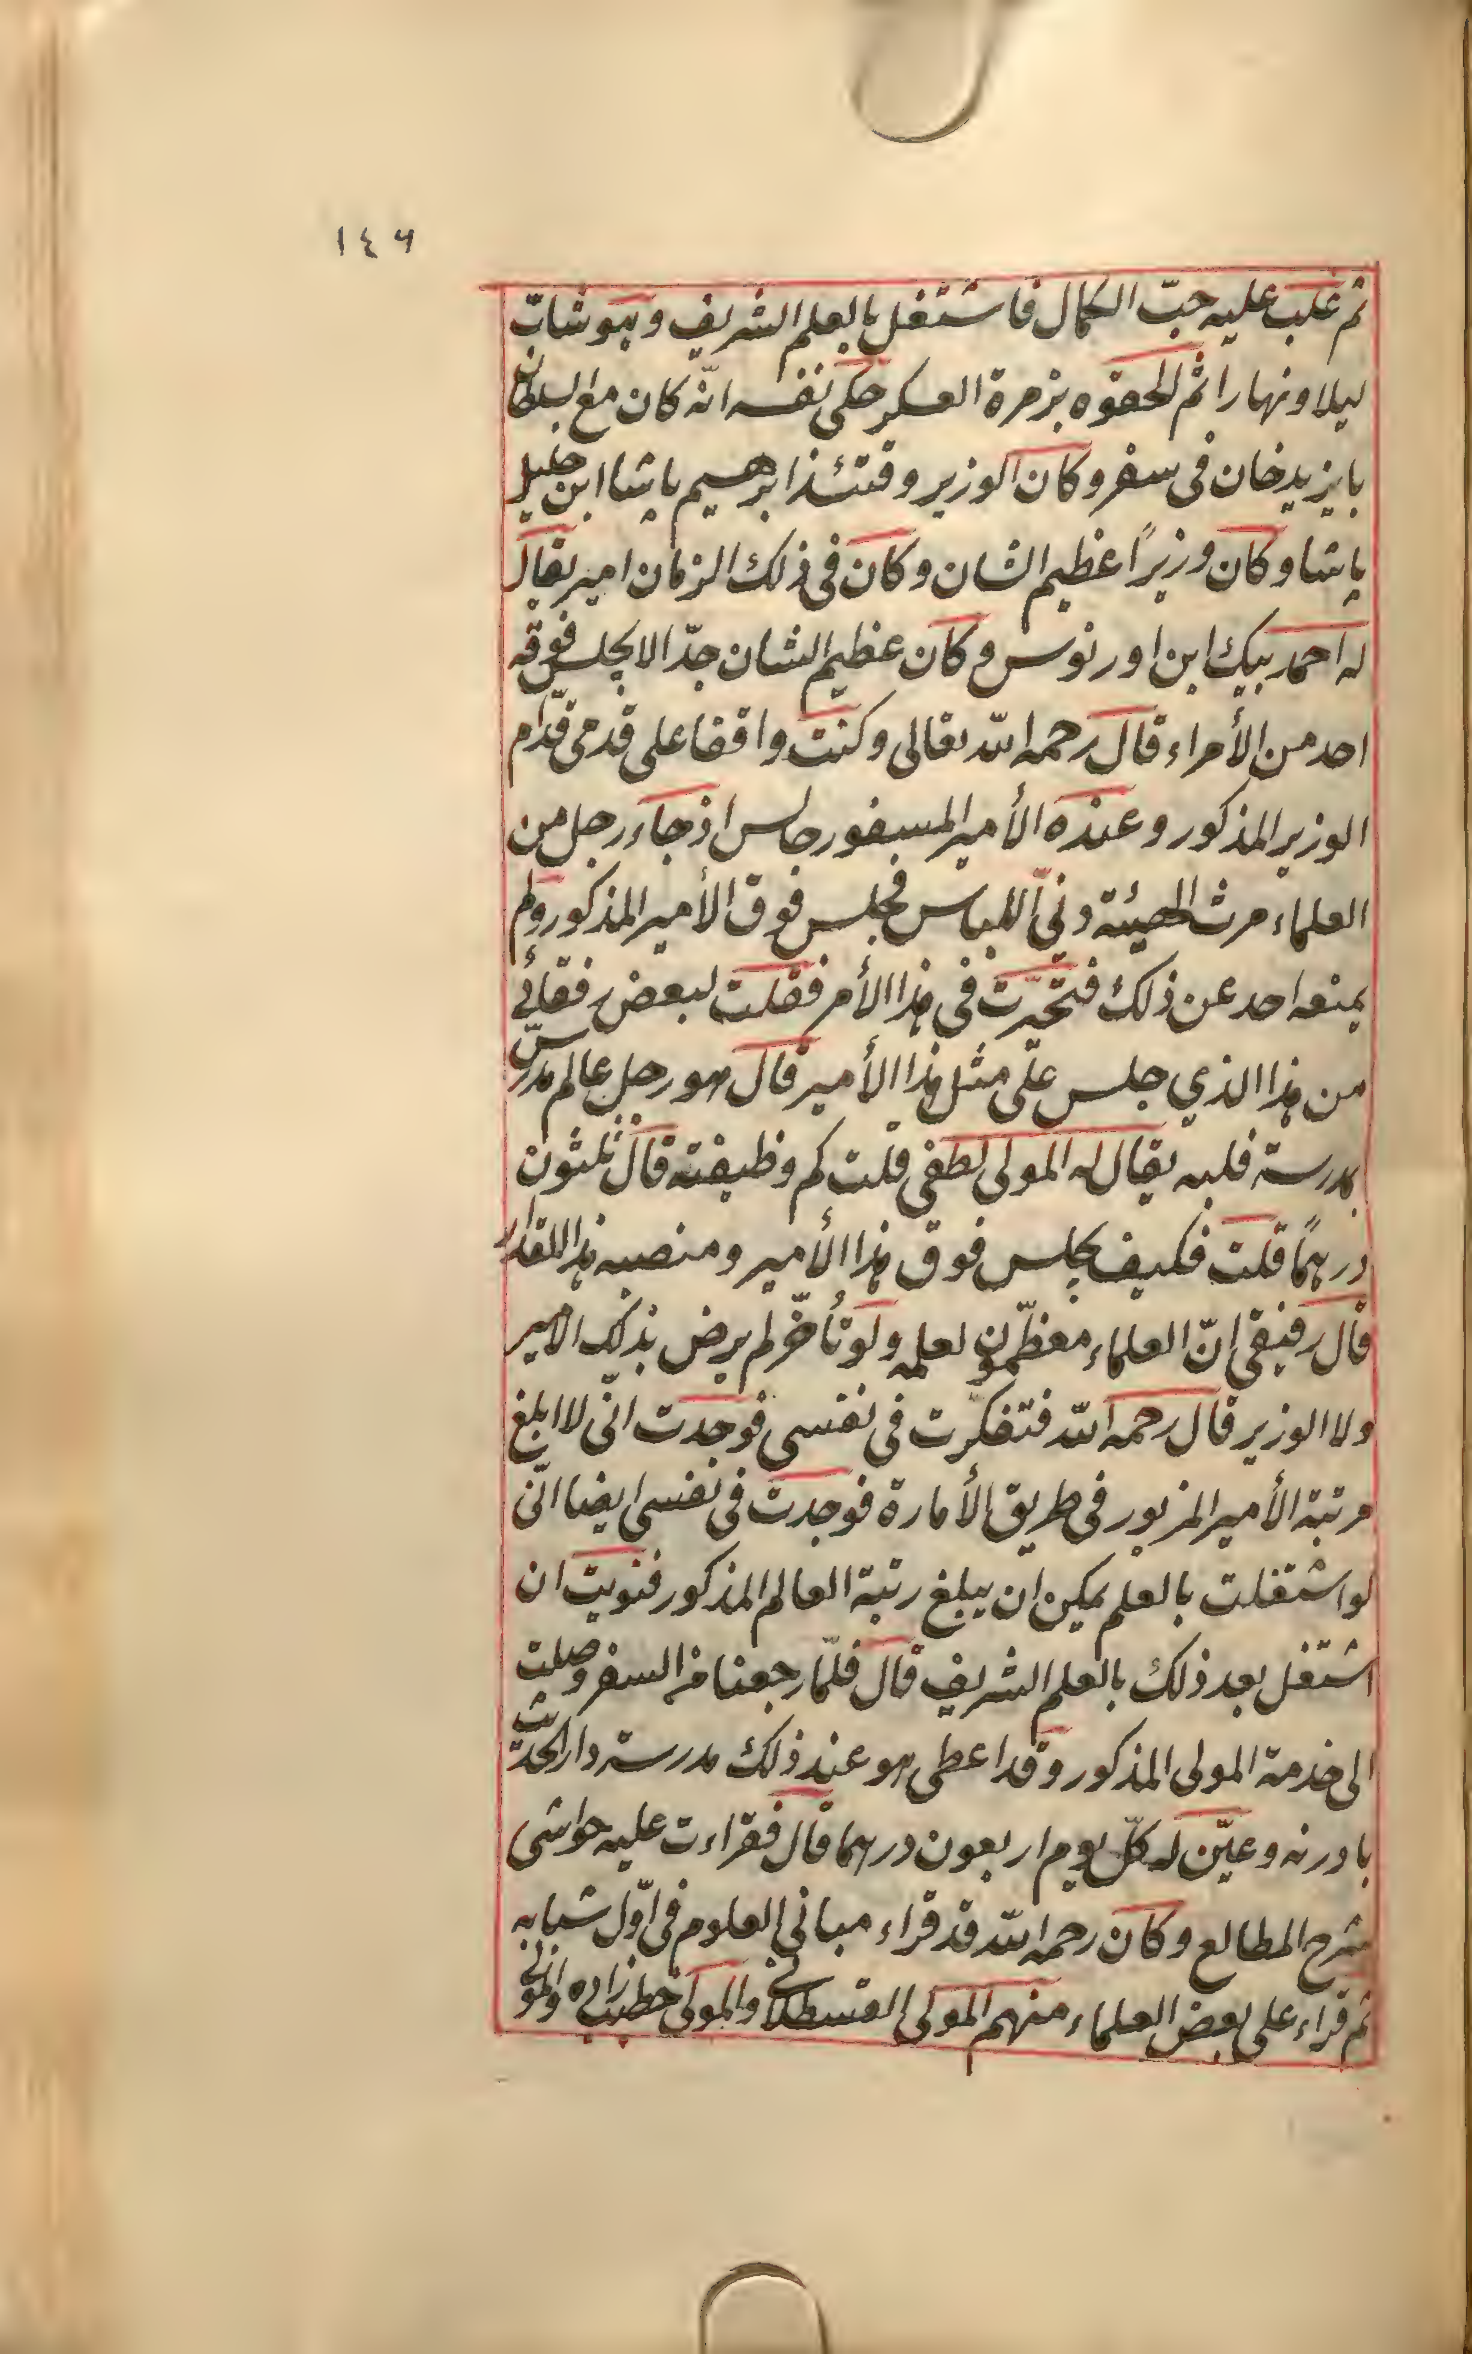 ١٤٦
ثم غلب عليه حبّ الكمال فاشتغل بالعلم الشريف وهو شاب
ليلا ونهارا ثم الحقوه بزمرة العسكر حكى نفسه انّه كان مع السلطان
بايزيد خان فى سفر وكان الوزير وقتئذ ابرهيم پاشا ابن خليل
پاشا وكان وزيرًا عظيم الشان وكان فى ذلك الزمان امير يقال
له احمد بيك ابن اورنوس وكان عظيم الشان جدّا لا يجلس فوقه
احد من الأمراء قال رحمه الله تعالى وكنت واقفا على قدمى قدّام
الوزير المذكور وعنده الأمير المسبفور جالس اذ جاء رجل من
العلماء رث الهيئة دنىّ اللباس فجلس فوق الأمير المذكور ولم
يمنعه احد عن ذلك فتحيّرت فى هذا الأمر فقلت لبعض رفقائي
من هذا الذي جلس على مثل هذا الأمير قال هو رجل عالم مدرّس
بمدرسة فلبه يقال له المولى لطفى قلت كم وظيفته قال ثلثون
درهمًا قلت فكيف يجلس فوق هذا الأمير ومنصبه هذا المقدار
قال رفيقى إنّ العلماء معظّمون لعلمه ولو تأخّر لم يرض بذلك الامير
ولا الوزير قال رحمه الله فتفكرت فى نفسى فوجدت انّى لا ابلغ
مرتبة الأمير المزبور فى طريق الأمارة فوجدت فى نفسى ايضا انّى
لو اشتغلت بالعلم يمكن ان يبلغ رتبة العالم المذكور فنويت ان
اشتغل بعد ذلك بالعلم الشريف قال فلمّا رجعنا من السفر وصلت
الى خدمة المولى المذكور وقد اعطى هو عند ذلك مدرسة دار الحديث
بادرنه وعيّن له كلّ يوم اربعون درهما قال فقراءت عليه حواشى
شرح المطالع وكان رحمه الله قد قراء مبانى العلوم فى اوّل شبابه
ثم قراء على بعض العلماء منهم المولى القسطلانى والمولى خطيب زاده والمولى